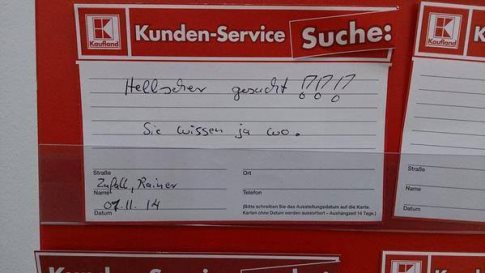 Kaufland
Kunden-Service Suche:
Hellseher gesucht !?!?!?
Sie wissen ja wo.
Straße
Ort
Zufall, Rainer
Name
Telefon
07.11.14
Datum
(Bitte schreiben Sie das Ausstellungsdatum auf die Karte.
Karten ohne Datum werden aussortiert – Aushangzeit 14 Tage.)
Kaufland
Straße
Name
Datum
Kunden-Service